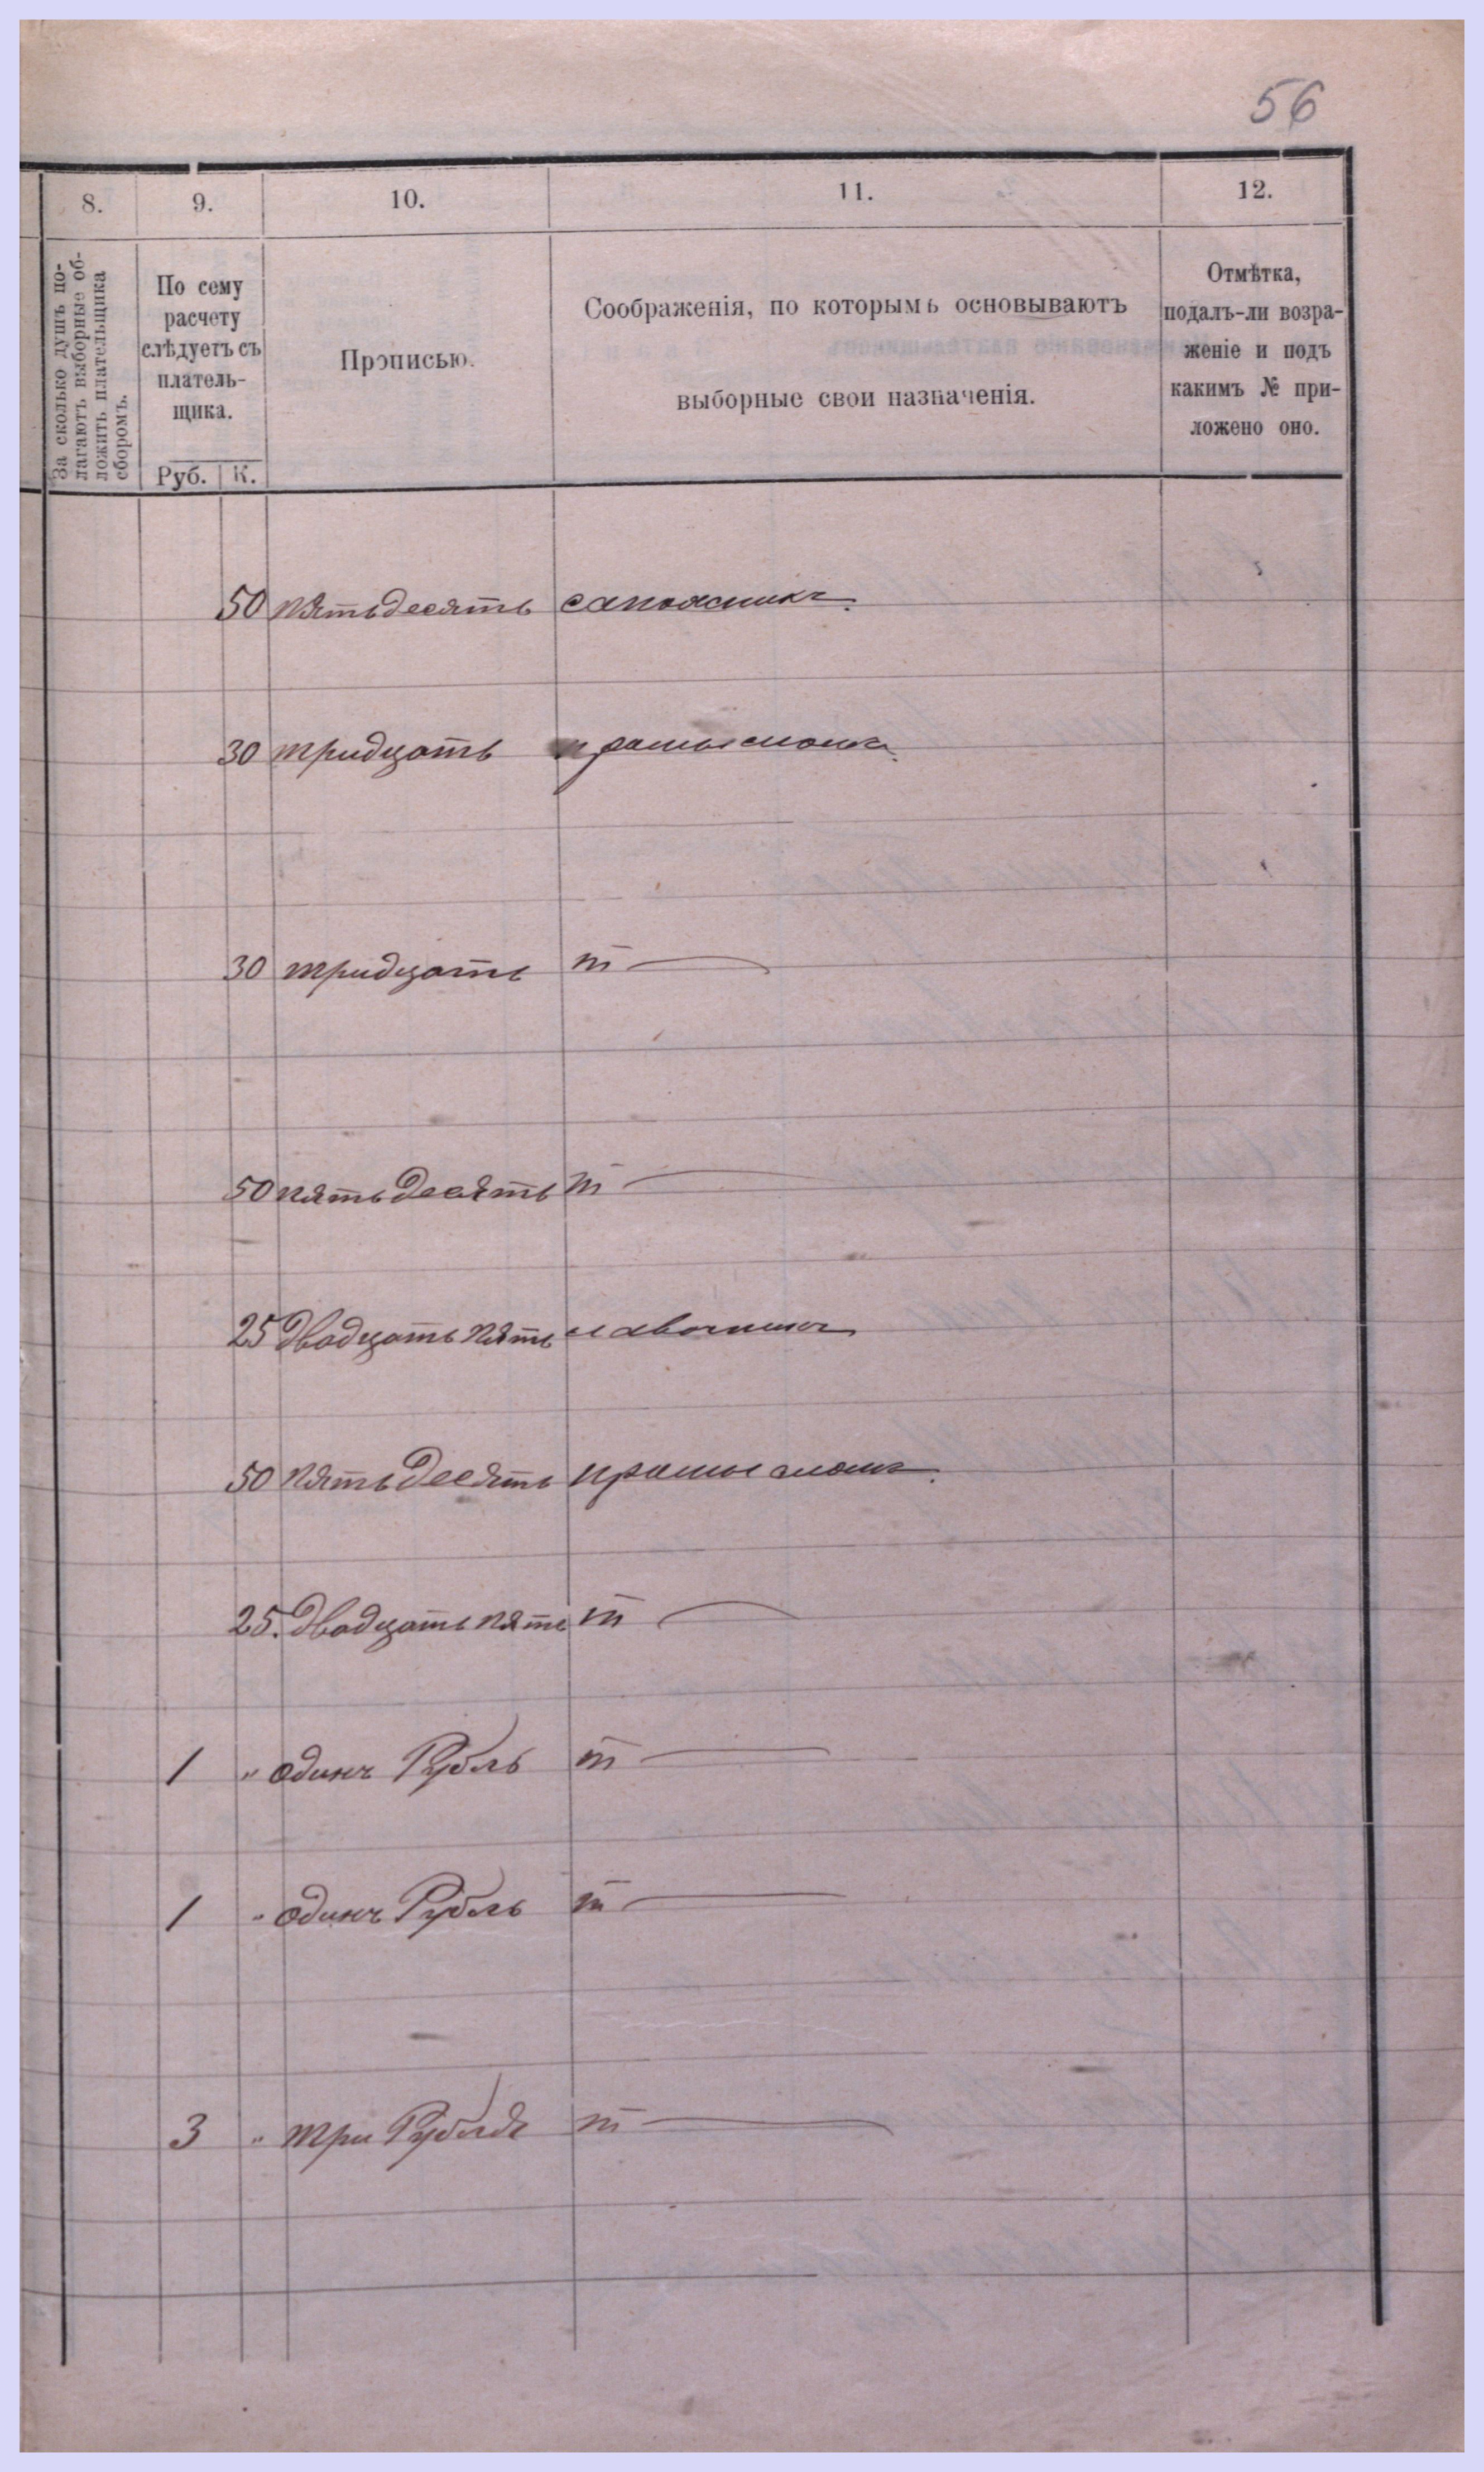 56
8. 9. 10. 11. 12.
За сколько душъ по-
лагаютъ выборные об-
ложить плательщика
сборомъ.
По сему
расчету
слѣдуетъ съ
платель-
щика.
Руб. К.
Прописью.
Соображенія, по которымъ основываютъ
выборные свои назначенія.
Отмѣтка,
подалъ-ли возра-
женіе и подъ
какимъ № при-
ложено оно.
50 пятьдесять сапожникъ
30 тридцать
30 тридцать т
50 пятьдесять т
25 двадцать пять
50 пятьдесять
25. двадцать пять т
1 " одинъ Рубль т
1 " одинъ Рубль т
3 " три Рубля т